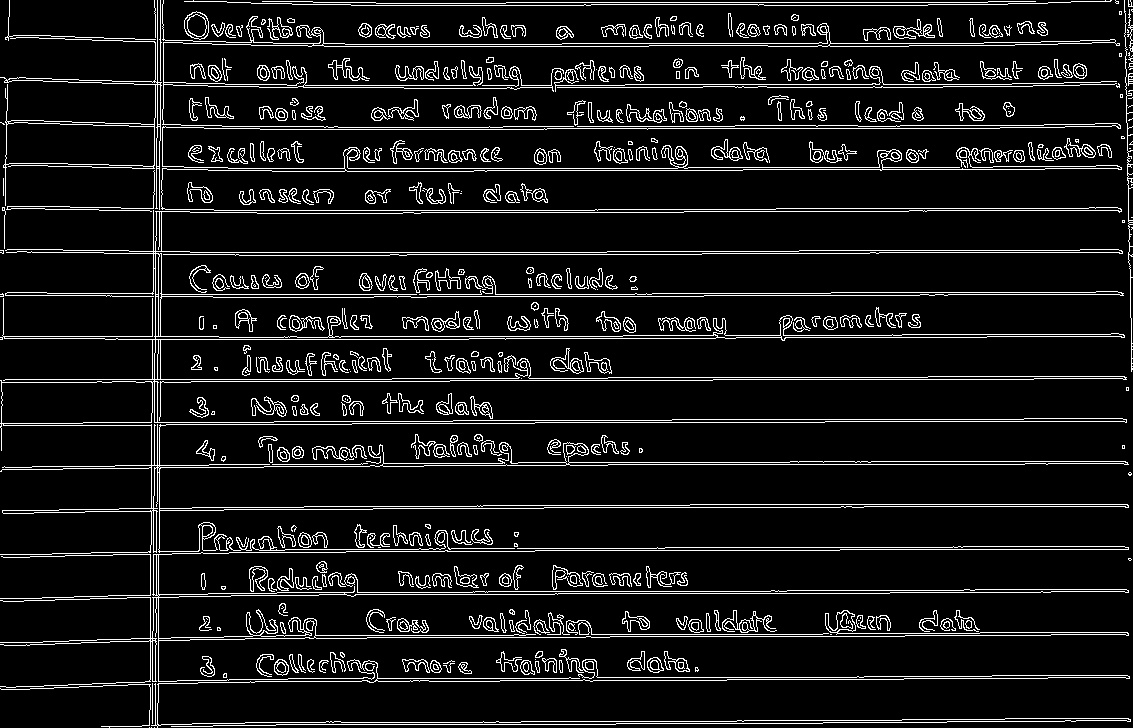 Overfitting occurs when a machine learning model learns
not only the underlying patterns in the training data but also
the noise and random fluctuations. This leads to
excellent performance on training data but poor generalization
to unseen or test data
Causes of overfitting include:
1. A complex model with too many parameters
2. insufficient training data
3. Noise in the data
4. Too many training epochs.
Prevention techniques :
1. Reducing number of Parameters
2. Using Cross validation to validate data
3. Collecting more training data.